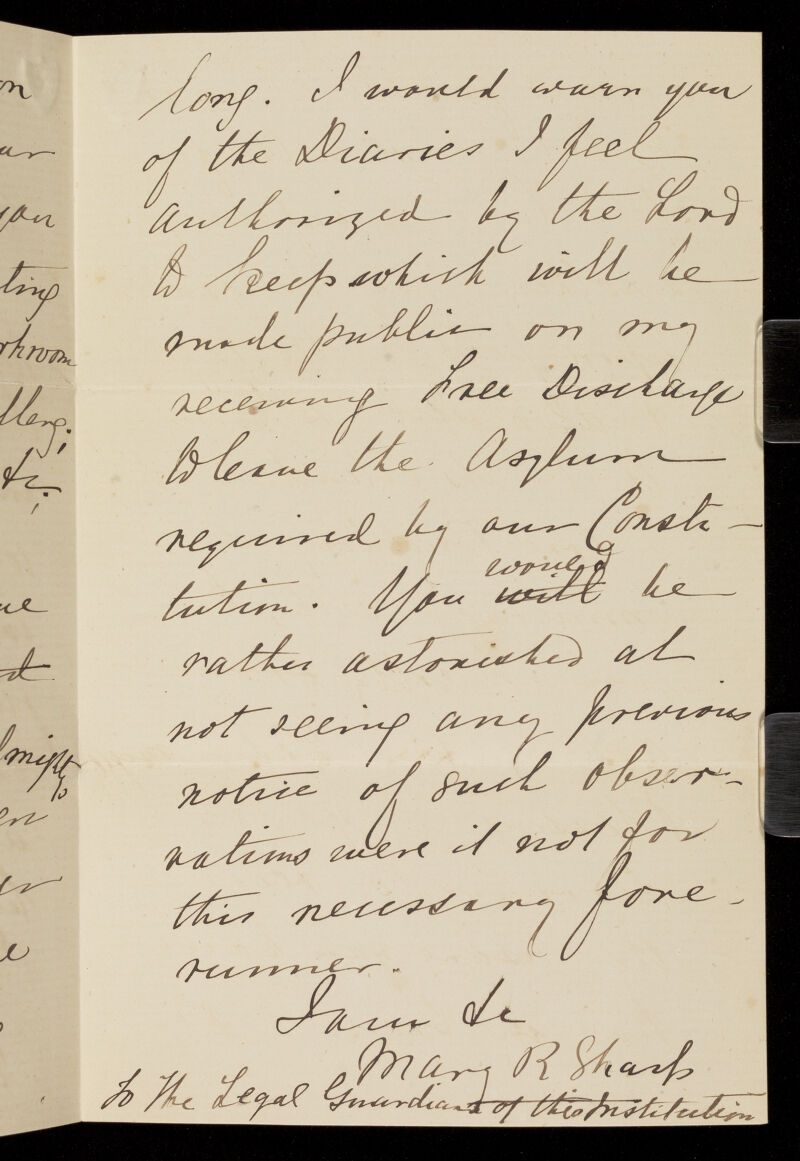 on
ur
you
ting
rkroom
llery;
&c.
ue
d
lmighty
en
ur
e
long. I would warn you
of the Diaries I feel
authorized by the Lord
to keep which will be
made public on my
receiving Free Discharge
to leave the Asylum
required by our Consti-
tution. You ~~will~~ would be
rather astonished at
not seeing any previous
notice of such obser-
vations were it not for
this necessary fore-
runner.
I am &c
Mary R Sharp
To The Legal Guardians of this Institution